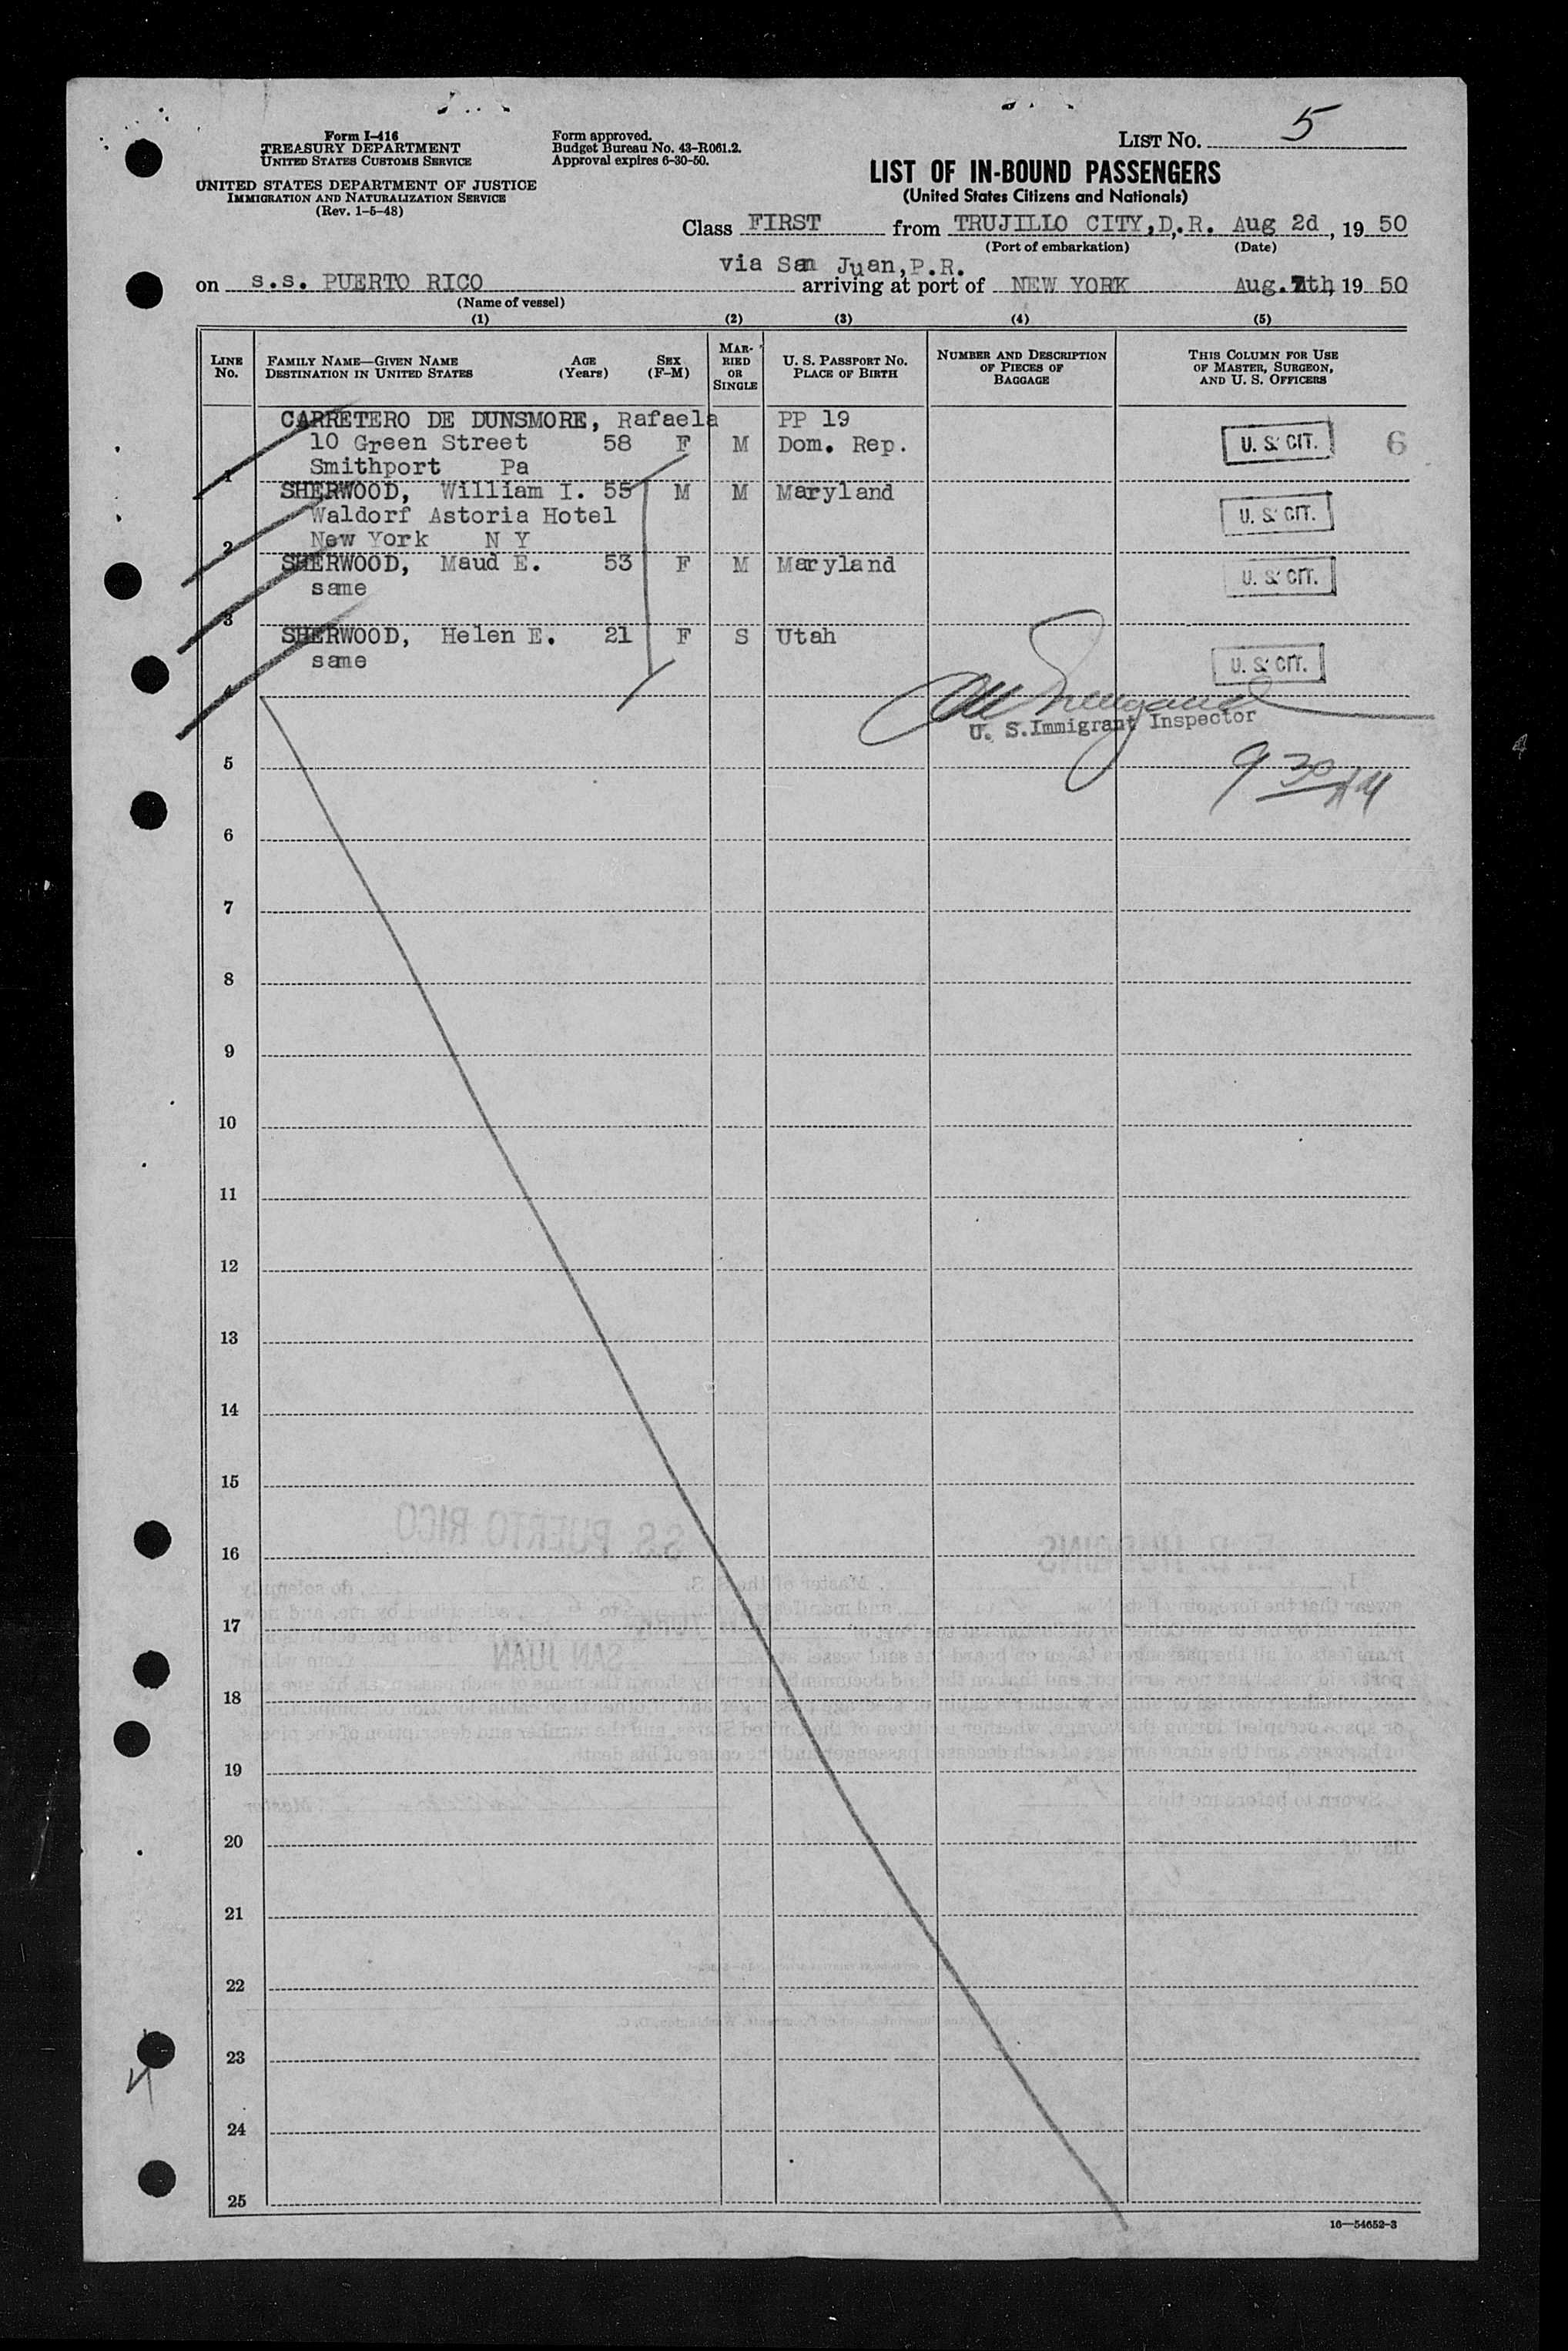 Form I-416
TREASURY DEPARTMENT
UNITED STATES CUSTOMS SERVICE
UNITED STATES DEPARTMENT OF JUSTICE
IMMIGRATION AND NATURALIZATION SERVICE
(Rev. 1-5-48)
Form approved.
Budget Bureau No. 43-R061.2.
Approval expires 6-30-50.
LIST NO. 5
LIST OF IN-BOUND PASSENGERS
(United States Citizens and Nationals)
Class FIRST from TRUJILLO CITY, D.R. Aug 2d, 19 50
(Port of embarkation) (Date)
via San Juan, P.R.
on s.s. PUERTO RICO arriving at port of NEW YORK Aug. 7th, 19 50
(Name of vessel)
(1) (2) (3) (4) (5)
LINE NO. FAMILY NAME—GIVEN NAME DESTINATION IN UNITED STATES AGE (Years) SEX (F-M) MARRIED OR SINGLE U. S. PASSPORT NO. PLACE OF BIRTH NUMBER AND DESCRIPTION OF PIECES OF BAGGAGE THIS COLUMN FOR USE OF MASTER, SURGEON, AND U. S. OFFICERS
CARRETERO DE DUNSMORE, Rafaela PP 19
10 Green Street 58 F M Dom. Rep. U. S. CIT. 6
1 Smithport Pa
SHERWOOD, William I. 55 M M Maryland
Waldorf Astoria Hotel U. S. CIT.
2 New York N Y
SHERWOOD, Maud E. 53 F M Maryland U. S. CIT.
same
3
SHERWOOD, Helen E. 21 F S Utah
same U. S. CIT.
4
U. S. Immigrant Inspector
5
9 30 AM
6
7
8
9
10
11
12
13
14
15
16
17
18
19
20
21
22
23
24
25
16—54652-3